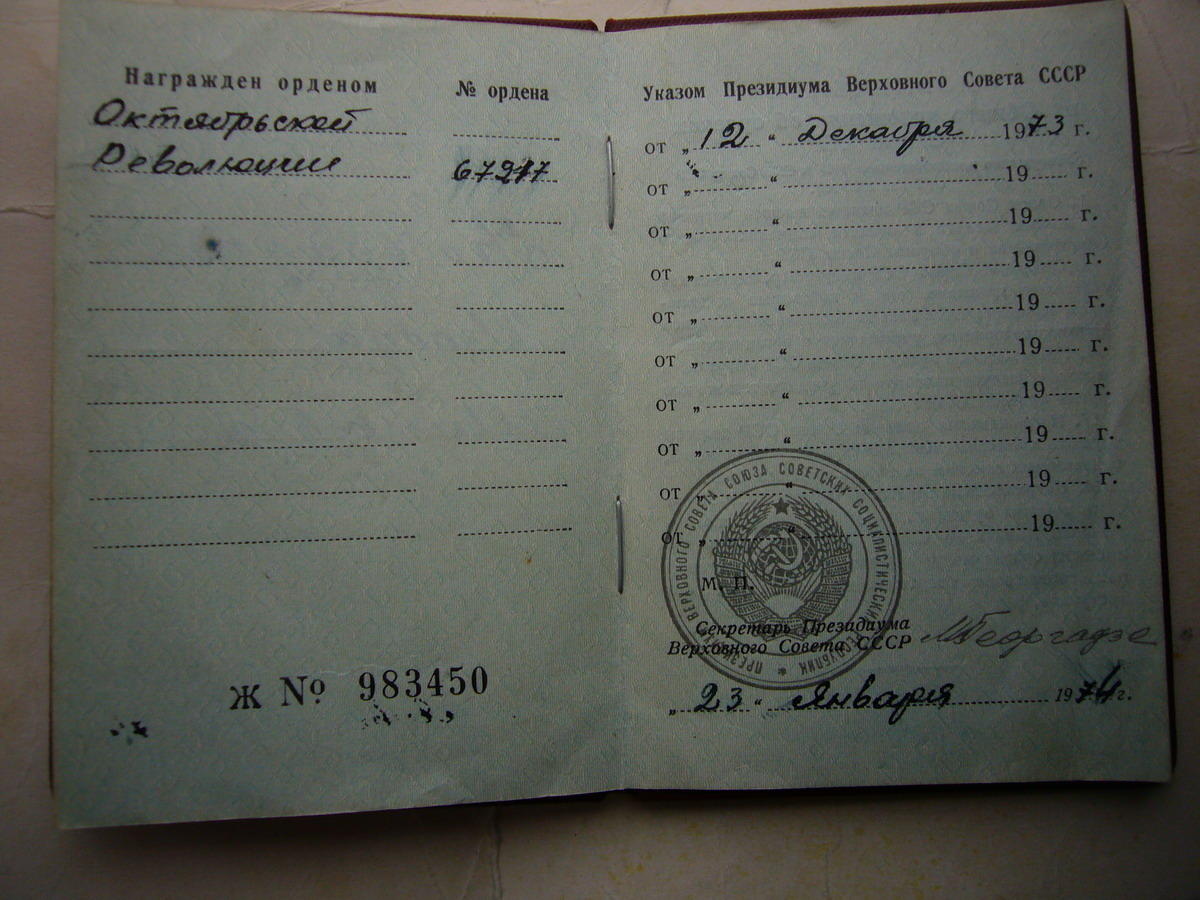 Награжден орденом
№ ордена
Октябрьской
Революции
67217
Ж № 983450
Указом Президиума Верховного Совета СССР
от „ 12 “ Декабря 1973 г.
от „ “ 19 г.
от „ “ 19 г.
от „ “ 19 г.
от „ “ 19 г.
от „ “ 19 г.
от „ “ 19 г.
от „ “ 19 г.
от „ “ 19 г.
от „ “ 19 г.
ПРЕЗИДИУМ ВЕРХОВНОГО СОВЕТА СОЮЗА СОВЕТСКИХ СОЦИАЛИСТИЧЕСКИХ РЕСПУБЛИК
М. П.
Секретарь Президиума
Верховного Совета СССР
МГеоргадзе
„ 23 “ Января 1974 г.